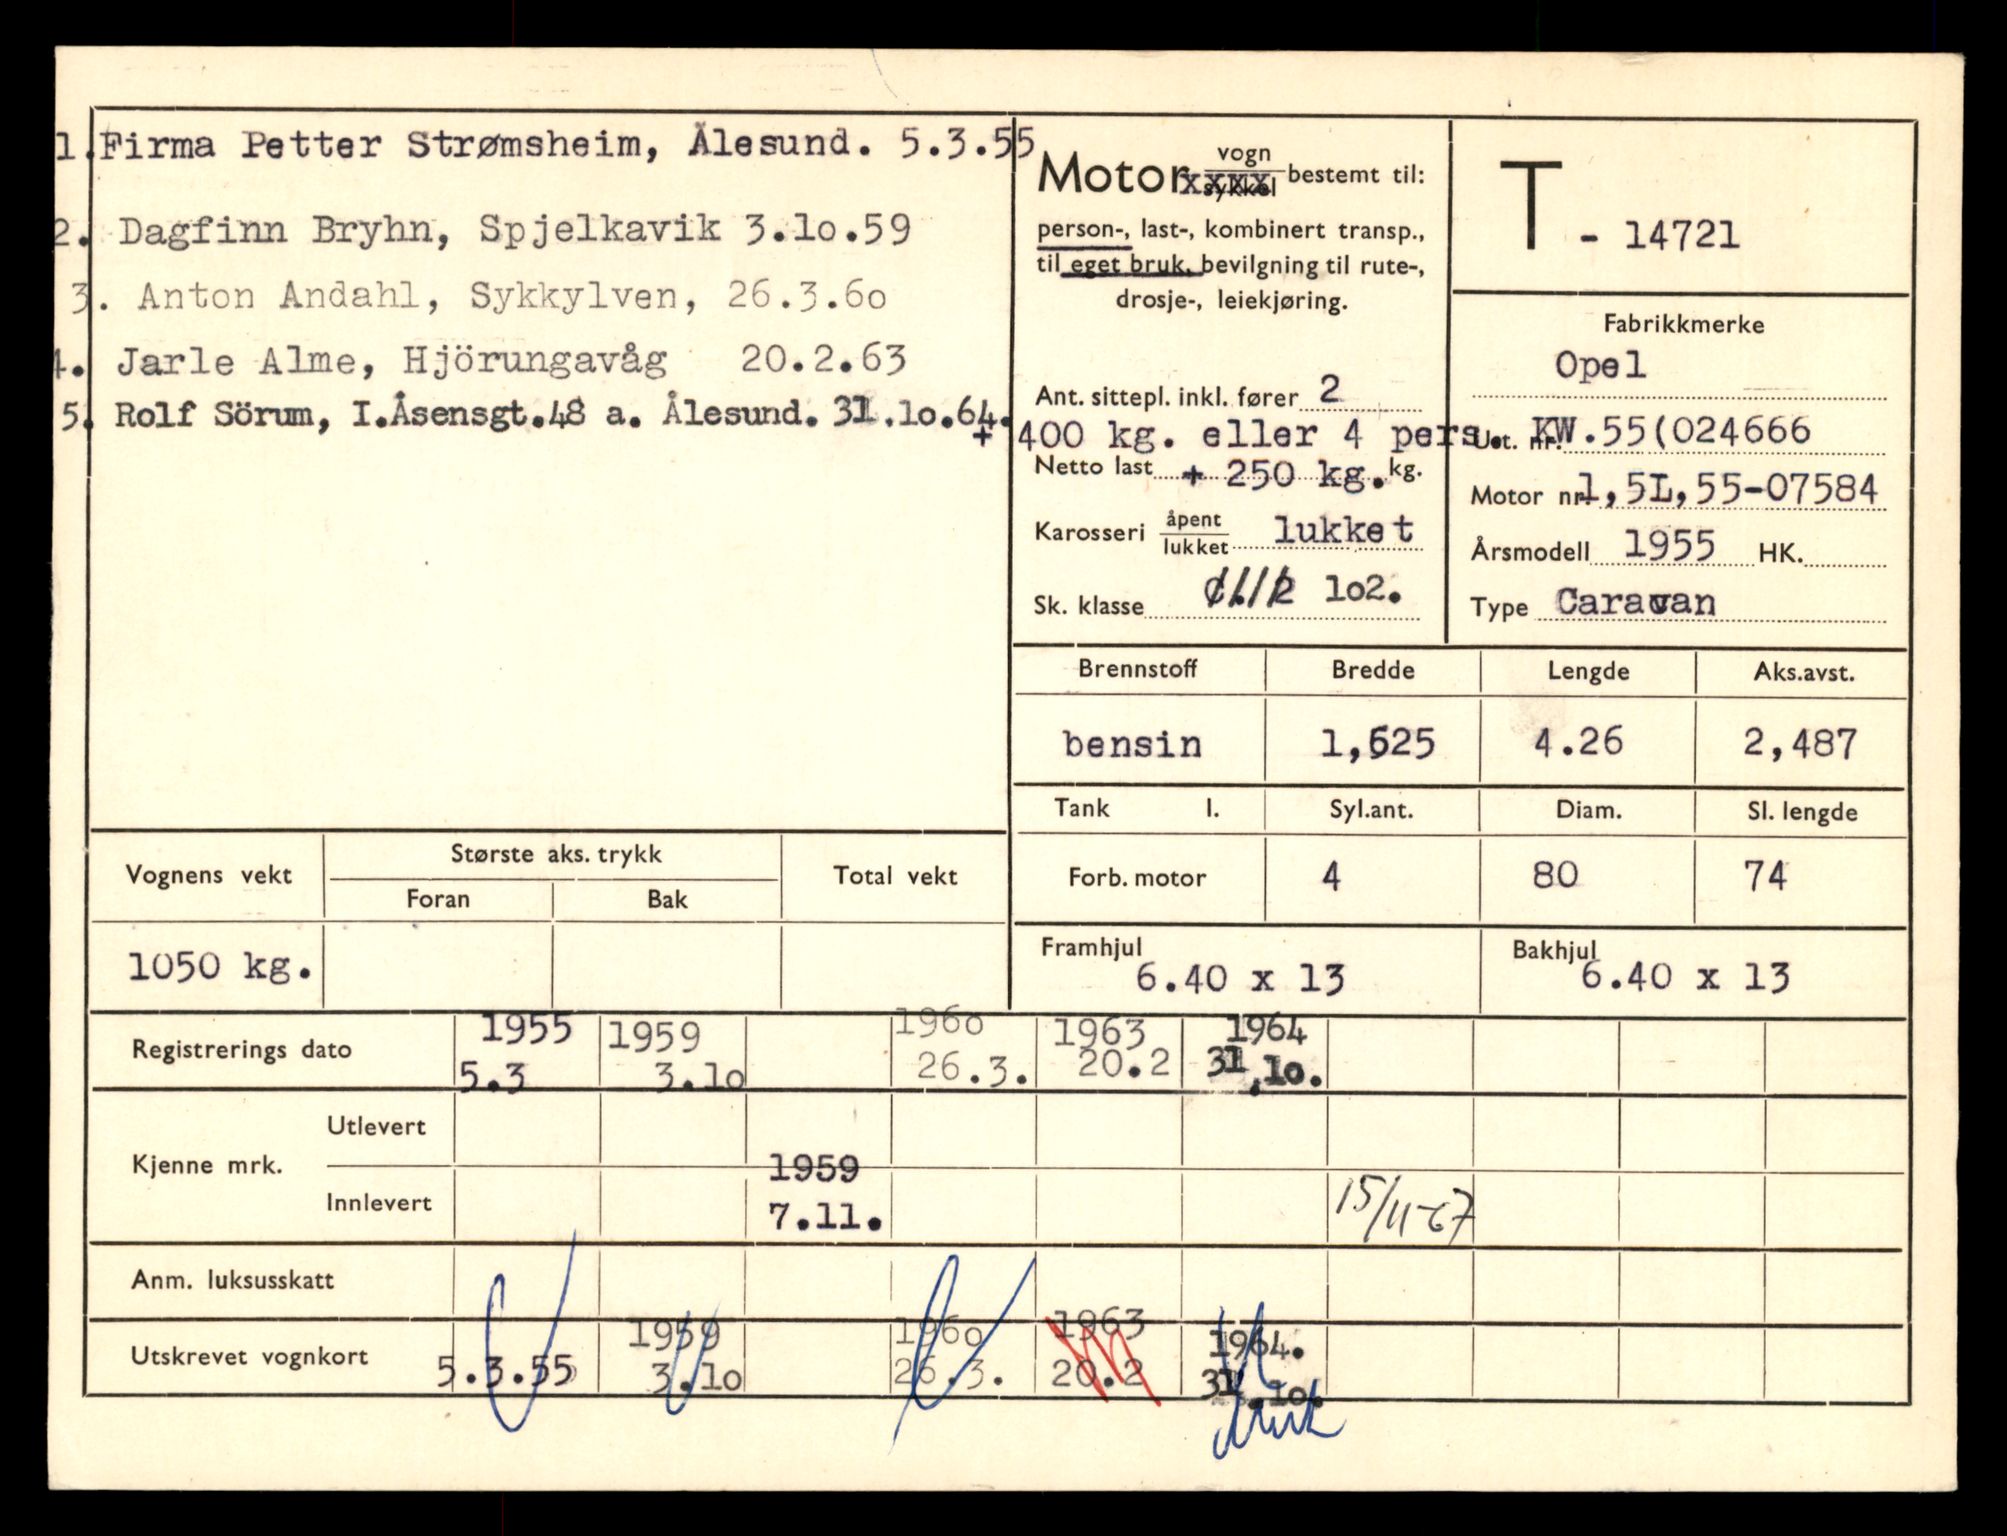 1. Firma Petter Strømsheim, Ålesund. 5.3.55
2. Dagfinn Bryhn, Spjelkavik 3.1o.59
3. Anton Andahl, Sykkylven, 26.3.6o
4. Jarle Alme, Hjörungavåg 20.2.63
5. Rolf Sörum, I.Åsensgt.48 a. Ålesund. 31.1o.64.
Motor vogn
sykkel bestemt til:
person-, last-, kombinert transp.,
til eget bruk, bevilgning til rute-,
drosje-, leiekjøring.
Ant. sittepl. inkl. fører 2
+ 400 kg. eller 4 pers.
Netto last + 250 kg. kg.
Karosseri åpent
lukket lukket
Sk. klasse 1o2.
T - 14721
Fabrikkmerke
Opel
Ut. nr. KW.55(024666
Motor nr. 1,5L,55-07584
Årsmodell 1955 HK.
Type Caravan
Brennstoff Bredde Lengde Aks.avst.
bensin 1,625 4.26 2,487
Tank l. Syl.ant. Diam. Sl. lengde
Forb. motor 4 80 74
Framhjul 6.40 x 13 Bakhjul 6.40 x 13
Vognens vekt Største aks. trykk Total vekt
Foran Bak
1050 kg.
Registrerings dato 1955 1959 196o 1963 1964
5.3 3.1o 26.3. 20.2 31.1o.
Kjenne mrk. Utlevert
Innlevert 1959 7.11. 15/11-67
Anm. luksusskatt
Utskrevet vognkort 1959 196o 1963 1964.
5.3.55 3.1o 26.3. 20.2 31.1o.